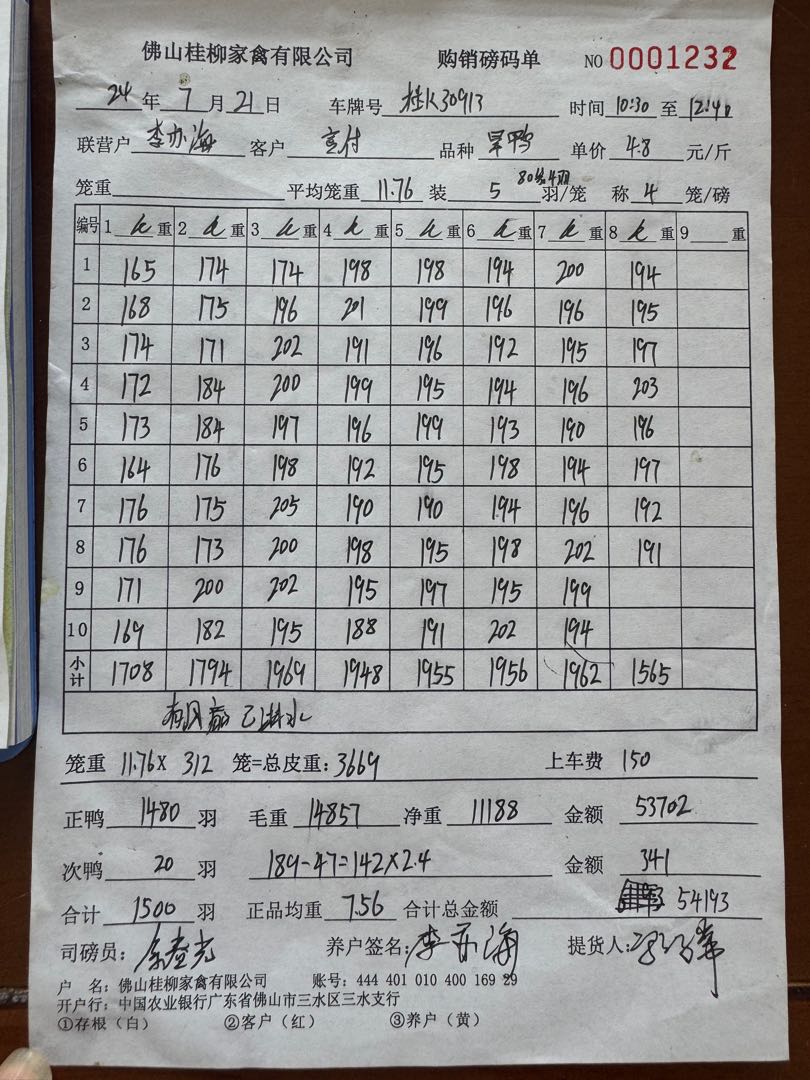 佛山桂柳家禽有限公司 购销磅码单 NO 0001232
24 年 7 月 21 日 车牌号 桂K30913 时间 10:30 至 12:40
联营户 李亦海 客户 品种 旱鸭 单价 4.8 元/斤
笼重 平均笼重 11.76 装 5 羽/笼 称 4 笼/磅
编号 1 重 2 重 3 重 4 重 5 重 6 重 7 重 8 重 9 重
1 165 174 174 198 198 194 200 194
2 168 175 196 201 199 196 196 195
3 174 171 202 191 196 192 195 197
4 172 184 200 199 195 194 196 203
5 173 184 197 196 199 193 190 196
6 164 176 198 192 195 198 194 197
7 176 175 205 190 190 194 196 192
8 176 173 200 198 195 198 202 191
9 171 200 202 195 197 195 199
10 169 182 195 188 191 202 194
小计 1708 1794 1969 1948 1955 1956 1962 1565
笼重 11.76X 312 笼=总皮重: 3669 上车费 150
正鸭 1480 羽 毛重 14857 净重 11188 金额 53702
次鸭 20 羽 189-47=142X2.4 金额 341
合计 1500 羽 正品均重 7.56 合计总金额 54193
司磅员: 养户签名: 李亦海 提货人:
户 名: 佛山桂柳家禽有限公司 账号: 444 401 010 400 169 29
开户行: 中国农业银行广东省佛山市三水区三水支行
①存根(白) ②客户(红) ③养户(黄)